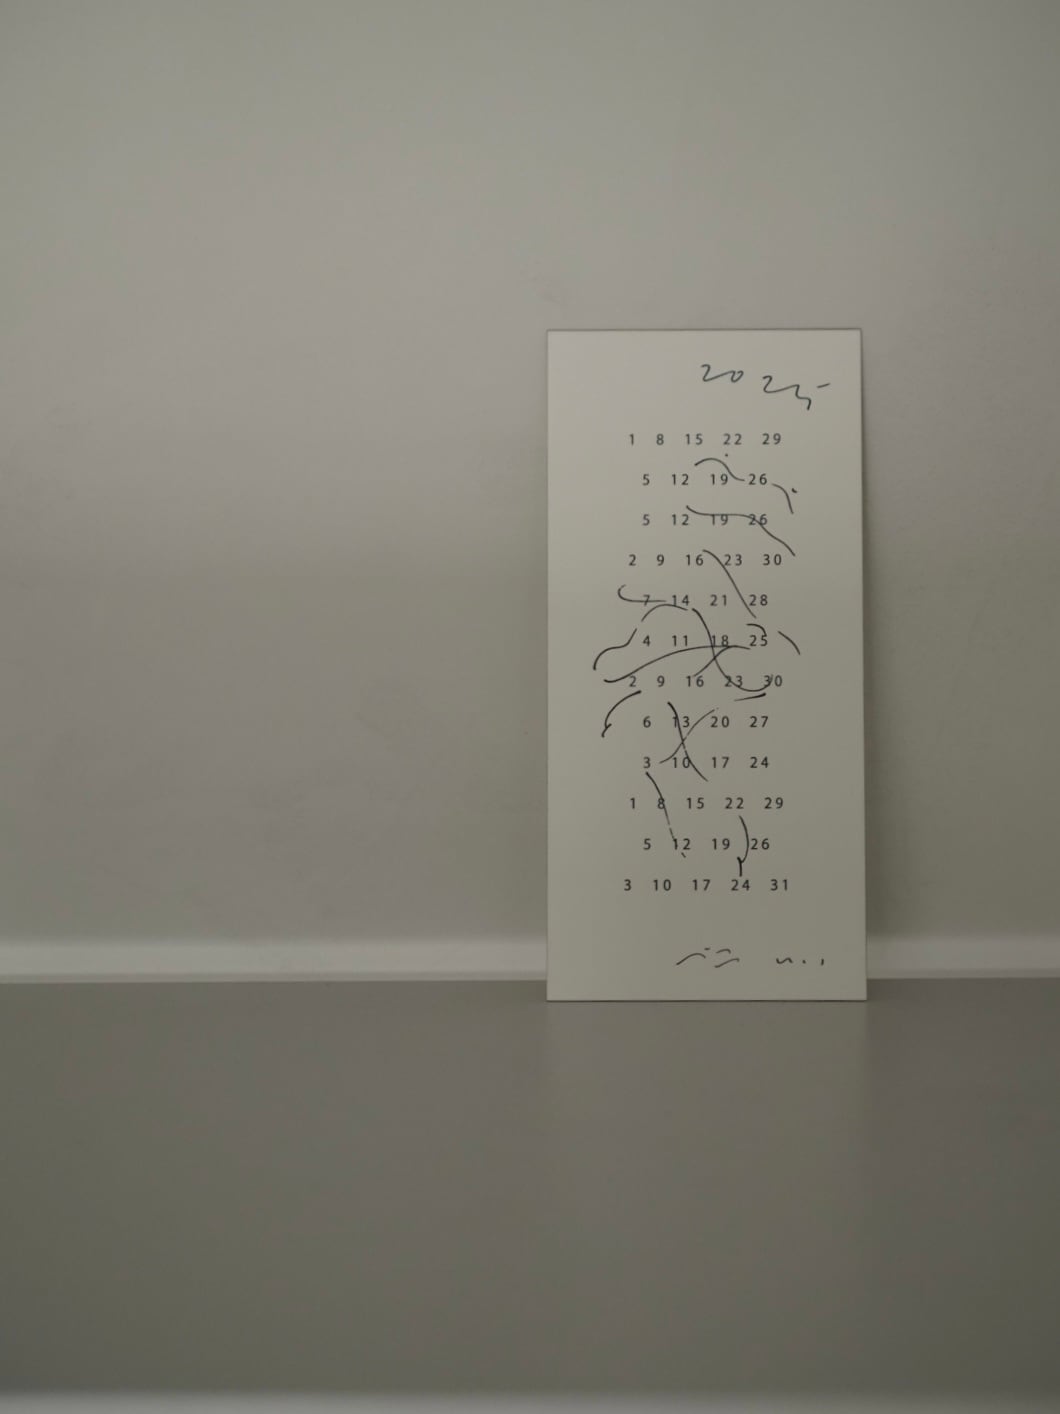 2025
1 8 15 22 29
5 12 19 26
5 12 19 26
2 9 16 23 30
7 14 21 28
4 11 18 25
2 9 16 23 30
6 13 20 27
3 10 17 24
1 8 15 22 29
5 12 19 26
3 10 17 24 31